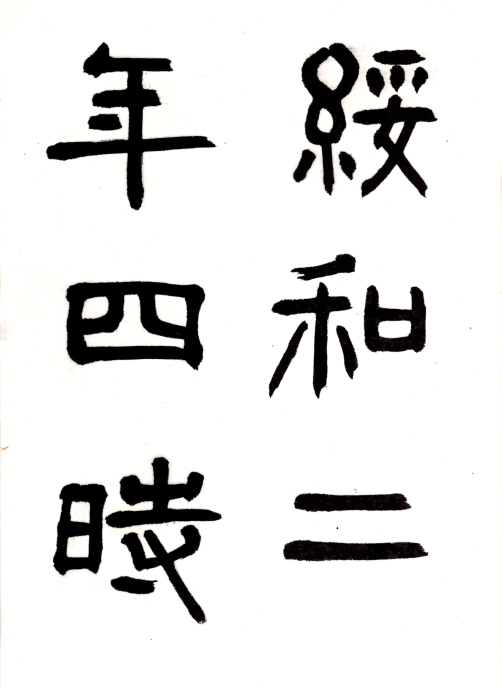 綏和二
年四時